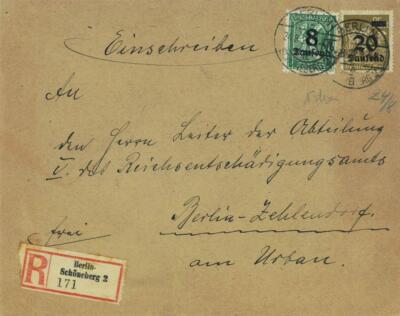 Einschreiben
8
Tausend
20
Tausend
An
den Herrn Leiter der Abteilung
V. des Reichsentschädigungsamts
Berlin-Zehlendorf.
frei
am Urban.
R
Berlin-
Schöneberg 2
171